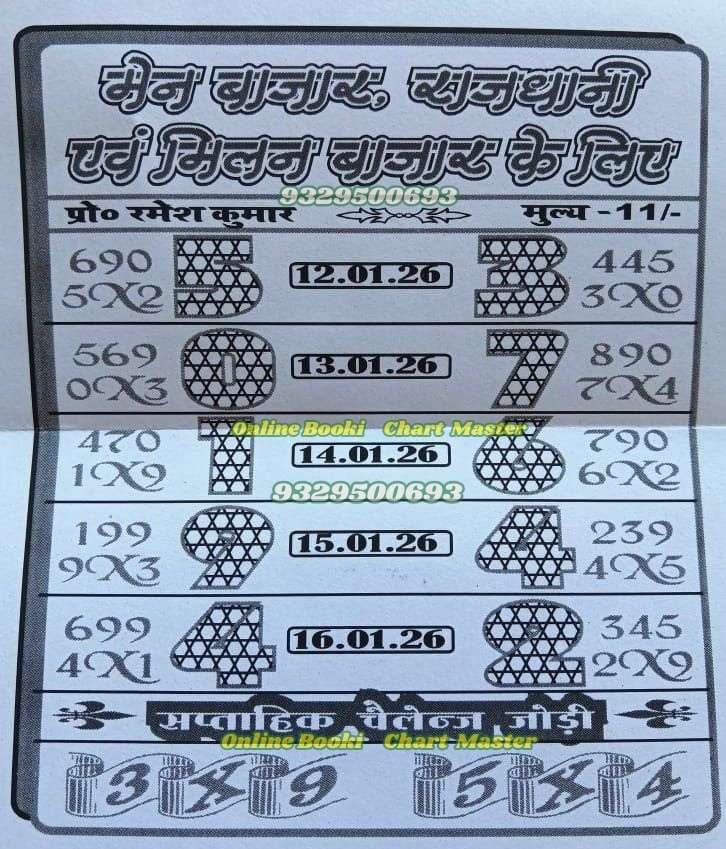 मेन बाजार, राजधानी
एवं मिलन बाजार के लिए
9329500693
प्रो० रमेश कुमार मुल्य -11/-
690 5 12.01.26 3 445
5X2 3X0
569 0 13.01.26 7 890
0X3 7X4
Online Booki Chart Master
470 1 14.01.26 6 790
1X9 6X2
9329500693
199 9 15.01.26 4 239
9X3 4X5
699 4 16.01.26 2 345
4X1 2X9
सप्ताहिक चैलेन्ज जोड़ी
Online Booki Chart Master
3X9 5X4